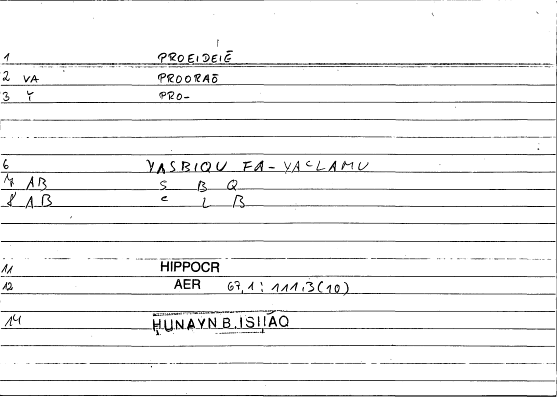 1 PROEIDEIĒ
2 VA PROORAŌ
3 Y PRO-
6 YASBIQU FA-YAcLAMU
7 AB S B Q
8 AB c L B
11 HIPPOCR
12 AER 67,1 : 111,3(10)
14 HUNAYN B. ISHAQ